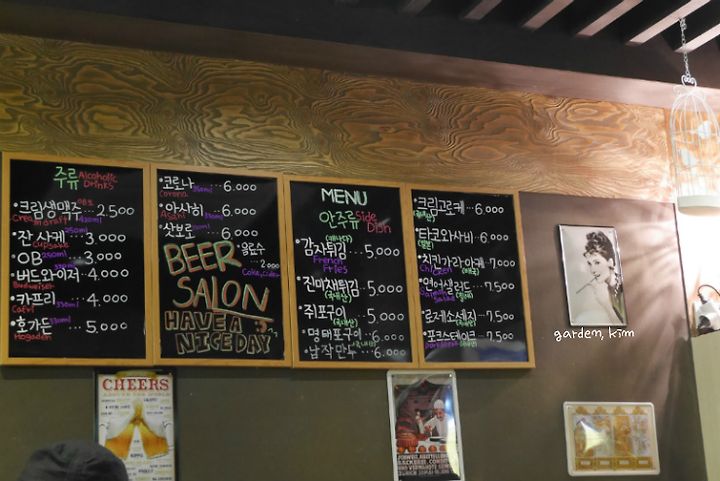 주류 Alcoholic Drinks
크림생맥주 2,500
Cream draft
잔사케 250ml 3,000
Cupsake
OB 250ml 3,000
버드와이저 330ml 4,000
Budweiser
카프리 330ml 4,000
Cafri
호가든 330ml 5,000
Hogaden
코로나 355ml 6,000
Corona
아사히 330ml 6,000
Asahi
산보로 6,000
BEER SALON
음료수 2,000
Coke, cider
HAVE A NICE DAY
MENU
안주류 Side Dish
감자튀김 5,000
French Fries
진미채튀김 5,000
쥐포구이 5,000
명태포구이 6,000
납작만두 6,000
크림고로케 6,000
타코와사비 6,000
치킨가라아게 7,000
Chicken
연어샐러드 7,500
Salad
로제소세지 7,500
포크스테이크 7,500
garden, kim
CHEERS
AROUND THE WORLD